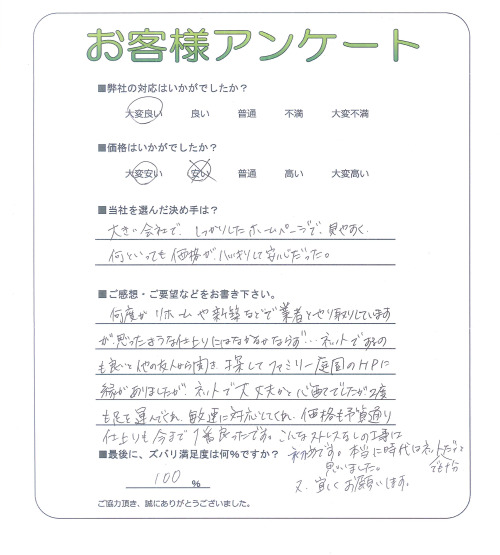 お客様アンケート
■弊社の対応はいかがでしたか？
大変良い 良い 普通 不満 大変不満
■価格はいかがでしたか？
大変安い 安い 普通 高い 大変高い
■当社を選んだ決め手は？
大きい会社で、しっかりしたホームページで、見やすく、
何といっても価格が、ハッキリして安心だった。
■ご感想・ご要望などをお書き下さい。
何度かリホームや新築などで業者とやり取りしています
が、思ったような仕上りにはなかなかならず…ネットでするの
も良いと他の友人から聞き、探してファミリー庭園のHPに
縁がありましたが、ネットで大丈夫かと心配でしたが2度
も足を運んでくれ、敏速に対応してくれ、価格も予算通り
仕上りも今まで1番良かったです。こんなストレスなしの工事は
初めてです。本当に時代はネットだけで
でも十分
思いました。
又、宜しくお願います。
■最後に、ズバリ満足度は何%ですか？
100 %
ご協力頂き、誠にありがとうございました。